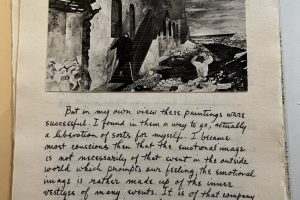 But in my own view these paintings were
successful. I found in them a way to go, actually
a liberation of sorts for myself. I became
most conscious then that the emotional image
is not necessarily of that event in the outside
world which prompts our feeling; the emotional
image is rather made up of the inner
vestiges of many events. It is of that company